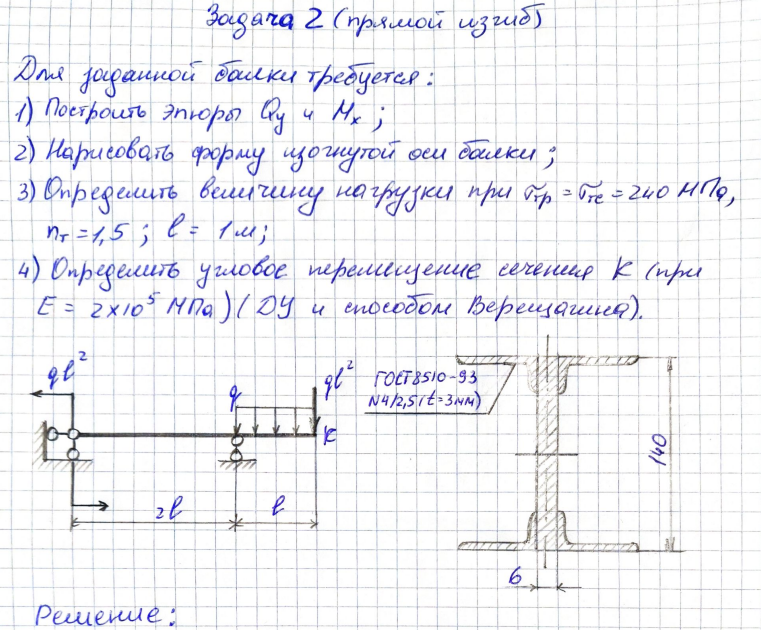 Задача 2 (прямой изгиб)
Для заданной балки требуется:
1) Построить эпюры Qy и Mx;
2) Нарисовать форму изогнутой оси балки;
3) Определить величину нагрузки при σтр = σтс = 240 МПа,
nт = 1,5; l = 1 м;
4) Определить угловое перемещение сечения K (при
E = 2×10⁵ МПа) (ДУ и способом Верещагина).
ql²
q
ql²
K
2l
l
ГОСТ 8510-93
N4/2,5 (t=3мм)
140
6
Решение: